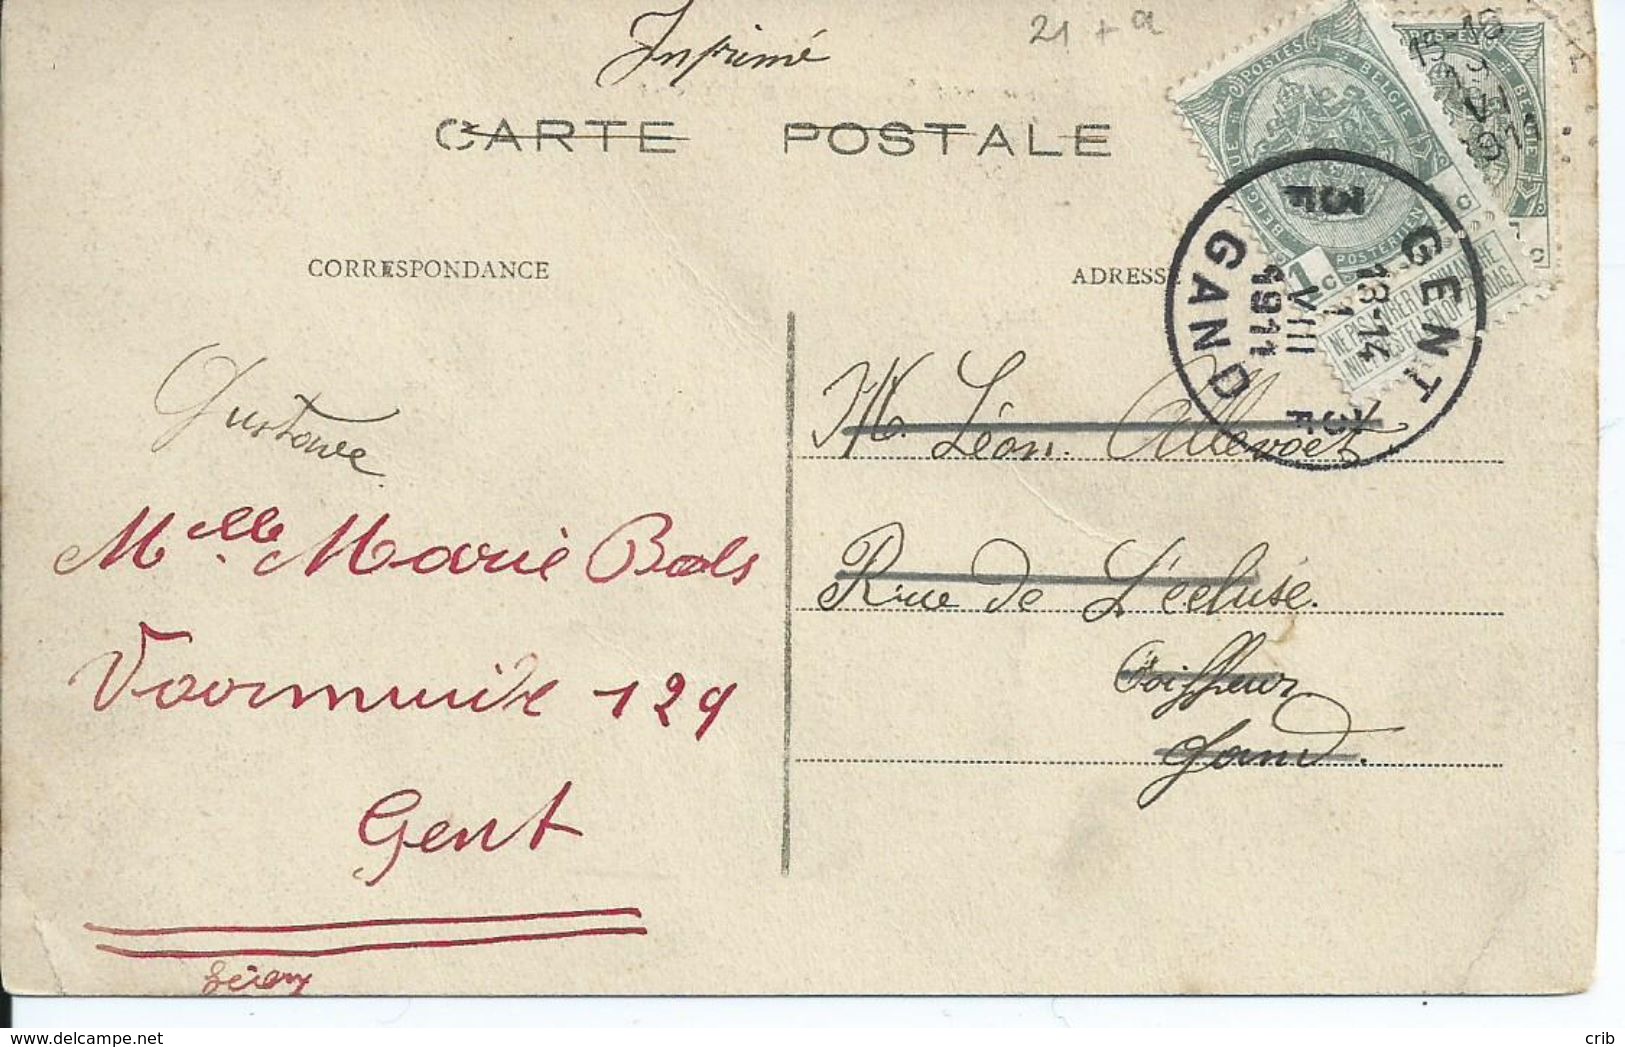 Imprimé
21 + a
CARTE POSTALE
CORRESPONDANCE
ADRESSE
POSTES BELGIE
BELGIQUE POSTERIJEN
1 c
NE PAS LIVRER LE DIMANCHE
NIET BESTELLEN OP ZONDAG
GENT
13-14
1
VIII
1911
GAND
3F
3F
Gustave
M. Léon Allevoet
Mlle Marie Bals
Rue de L'écluse.
Voormuide 129
Coiffeur
Gand.
Gent
delcampe.net
crib